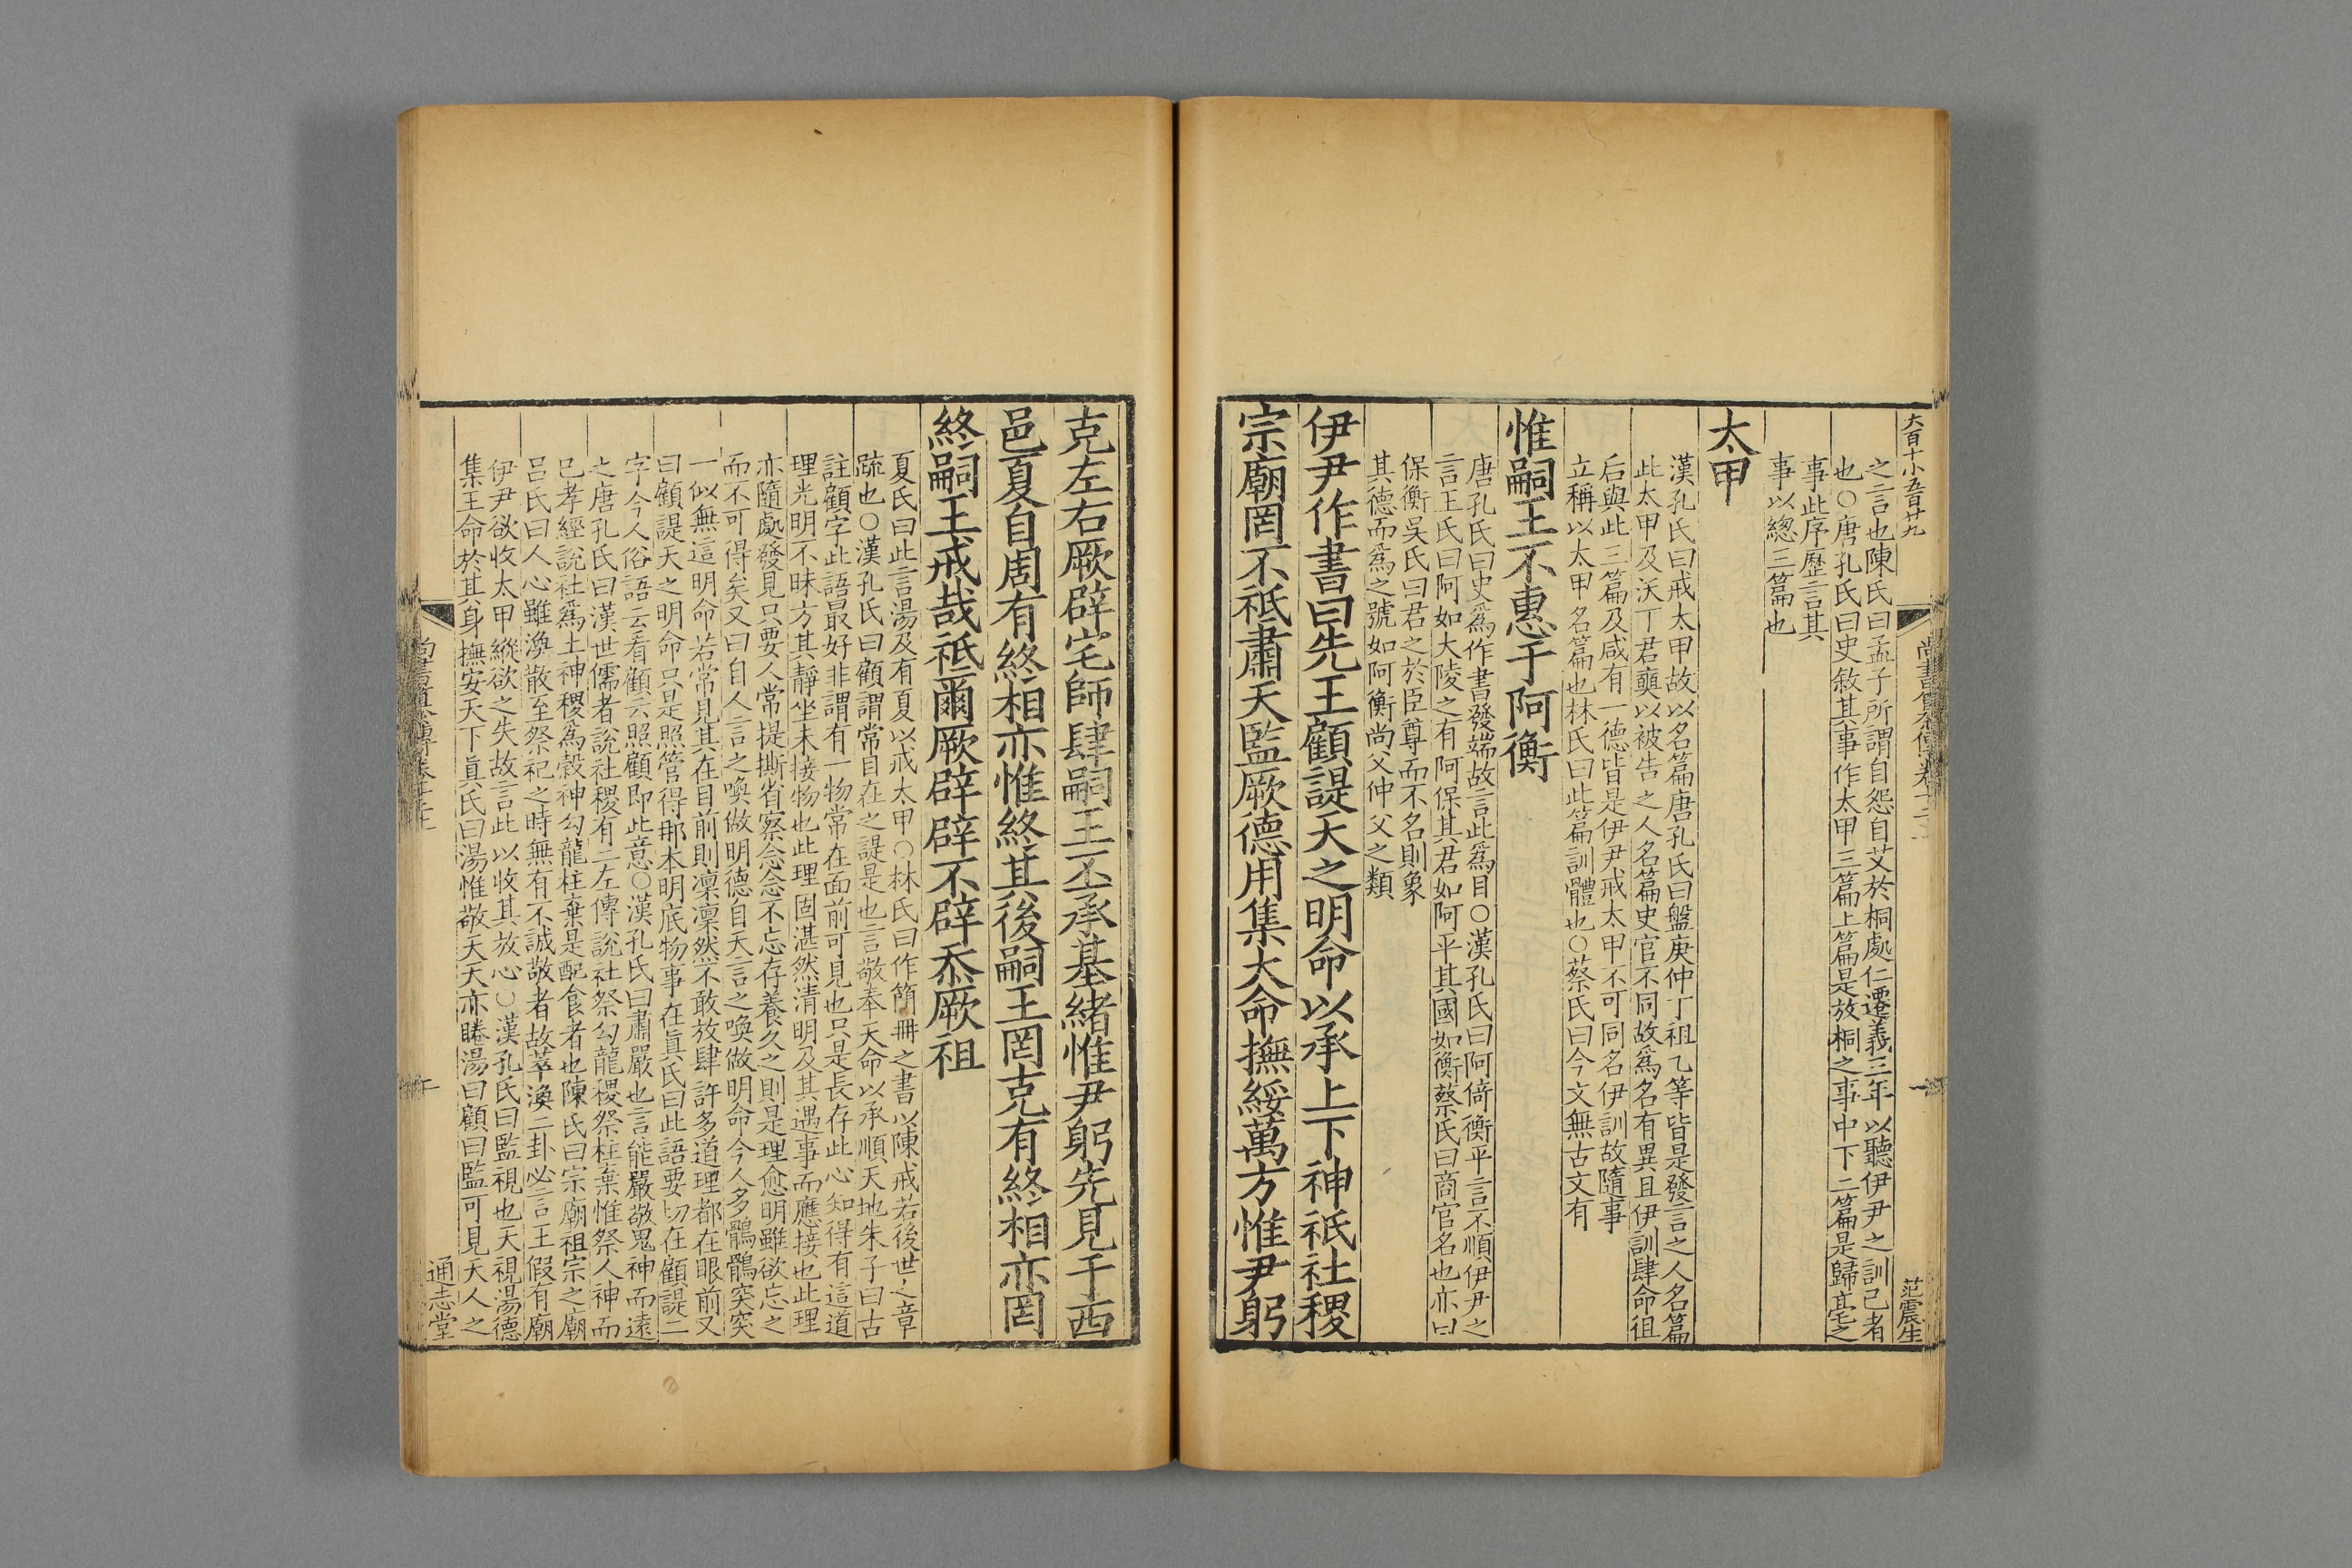 大百十小五百廿九
之言也陳氏曰孟子所謂自怨自艾於桐處仁遷義三年以聽伊尹之訓己者
也○唐孔氏曰史敘其事作太甲三篇上篇是放桐之事中下二篇是歸亳之
事此序歷言其
事以總三篇也
太甲
漢孔氏曰戒太甲故以名篇唐孔氏曰盤庚仲丁祖乙等皆是發言之人名篇
此太甲及沃丁君奭以被告之人名篇史官不同故爲名有異且伊訓肆命徂
后與此三篇及咸有一德皆是伊尹戒太甲不可同名伊訓故隨事
立稱以太甲名篇也林氏曰此篇訓體也○蔡氏曰今文無古文有
惟嗣王不惠于阿衡
唐孔氏曰史爲作書發端故言此爲目○漢孔氏曰阿倚衡平言不順伊尹之
言王氏曰阿如大陵之有阿保其君如阿平其國如衡蔡氏曰商官名也亦曰
保衡吳氏曰君之於臣尊而不名則象
其德而爲之號如阿衡尚父仲父之類
伊尹作書曰先王顧諟天之明命以承上下神祇社稷
宗廟罔不祗肅天監厥德用集大命撫綏萬方惟尹躬
范震生
克左右厥辟宅師肆嗣王丕承基緒惟尹躬先見于西
邑夏自周有終相亦惟終其後嗣王罔克有終相亦罔
終嗣王戒哉祗爾厥辟辟不辟忝厥祖
夏氏曰此言湯及有夏以戒太甲○林氏曰作簡冊之書以陳戒若後世之章
疏也○漢孔氏曰顧謂常目在之諟是也言敬奉天命以承順天地朱子曰古
註顧字此語最好非謂有一物常在面前可見也只是長存此心知得有這道
理光明不昧方其靜坐未接物也此理固湛然清明及其遇事而應接也此理
亦隨處發見只要人常提撕省察念念不忘存養久之則是理愈明雖欲忘之
而不可得矣又曰自人言之喚做明德自天言之喚做明命今人多鶻鶻突突
一似無這明命若常見其在目前則凜凜然不敢放肆許多道理都在眼前又
曰顧諟天之明命只是照管得那本明底物事在眞氏曰此語要切在顧諟二
字今人俗語云看顧云照顧即此意○漢孔氏曰肅嚴也言能嚴敬鬼神而遠
之唐孔氏曰漢世儒者說社稷有二左傳說社祭勾龍稷祭柱棄惟祭人神而
已孝經說社爲土神稷爲穀神勾龍柱棄是配食者也陳氏曰宗廟祖宗之廟
呂氏曰人心雖渙散至祭祀之時無有不誠敬者故萃渙二卦必言王假有廟
伊尹欲收太甲縱欲之失故言此以收其放心○漢孔氏曰監視也天視湯德
集王命於其身撫安天下眞氏曰湯惟敬天天亦睠湯曰顧曰監可見天人之
通志堂